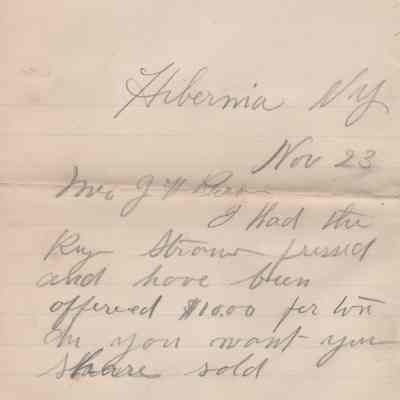 Hibernia NY
Nov 23
Mrs J W
I Had the
Rye Straw pressed
and have been
offered $10.00 per ton
do you want you
Share sold